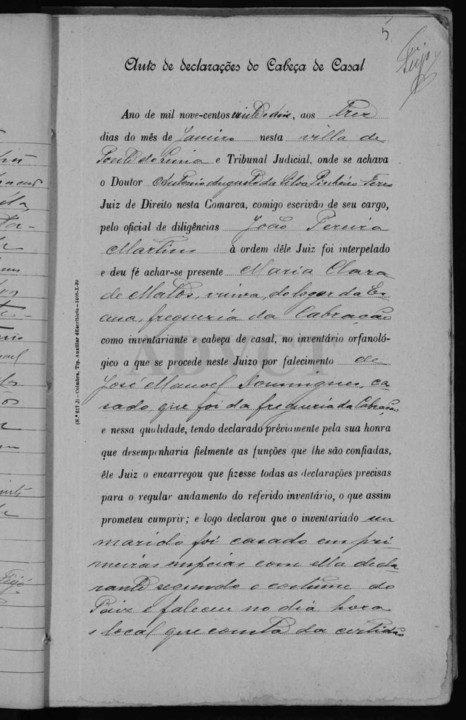 5
Feijó
Auto de declarações do Cabeça de Casal
Ano de mil nove-centos trinta e dois, aos Três
dias do mês de Janeiro nesta villa de
Ponte do Lima e Tribunal Judicial, onde se achava
o Doutor Antonio Augusto da Silva Pinheiro Ferro
Juiz de Direito nesta Comarca, comigo escrivão de seu cargo,
pelo oficial de diligências João Pereira
Martins à ordem dêle Juiz foi interpelado
e deu fé achar-se presente Maria Clara
de Matos, viuva, do logar da
freguezia da Cabração
como inventariante e cabeça de casal, no inventário orfanoló-
gico a que se procede neste Juizo por falecimento de
José Manoel Domingues, ca-
sado que foi da freguezia da Cabração
e nessa qualidade, tendo declarado préviamente pela sua honra
que desempenharia fielmente as funções que lhe são confiadas,
êle Juiz o encarregou que fizesse todas as declarações precisas
para o regular andamento do referido inventário, o que assim
prometeu cumprir; e logo declarou que o inventariado seu
marido foi casado em pri-
meiras nupcias com ella decla-
rante segundo o costume do
Paiz e faleceu no dia hora
e local que consta da certidão